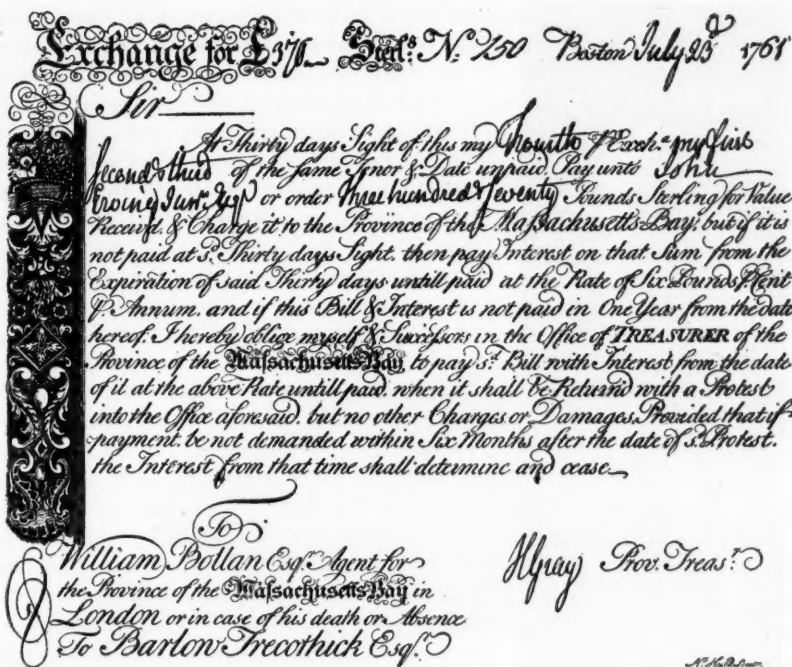 Exchange for £370 Sterl.s N.o 250 Boston July 23d 1761
Sir
At Thirty days Sight of this my Fourth of Exch.a my first
Second & third of the same Tenor & Date unpaid, Pay unto John
Erving Junr. Esqr. or order Three hundred & Seventy Pounds Sterling for Value
Received, & Charge it to the Province of the Massachusetts-Bay, but if it is
not paid at s.d Thirty days Sight, then pay Interest on that Sum from the
Expiration of said Thirty days untill paid at the Rate of Six Pounds P Cent
P. Annum, and if this Bill & Interest is not paid in One Year from the date
hereof. I hereby oblige myself & Successors in the Office of TREASURER of the
Province of the Massachusetts Bay to pay s.d Bill with Interest from the date
of it at the above Rate untill paid, when it shall be Return'd with a Protest
into the Office aforesaid, but no other Charges or Damages, Provided that if
payment, be not demanded within Six Months after the date of s.d Protest.
the Interest from that time shall determine and cease
To
William Bollan Esqr. Agent for
the Province of the Massachusetts Bay in
London or in case of his death or Absence
To Barlow Trecothick Esqr.
H Gray Prov. Treasr.